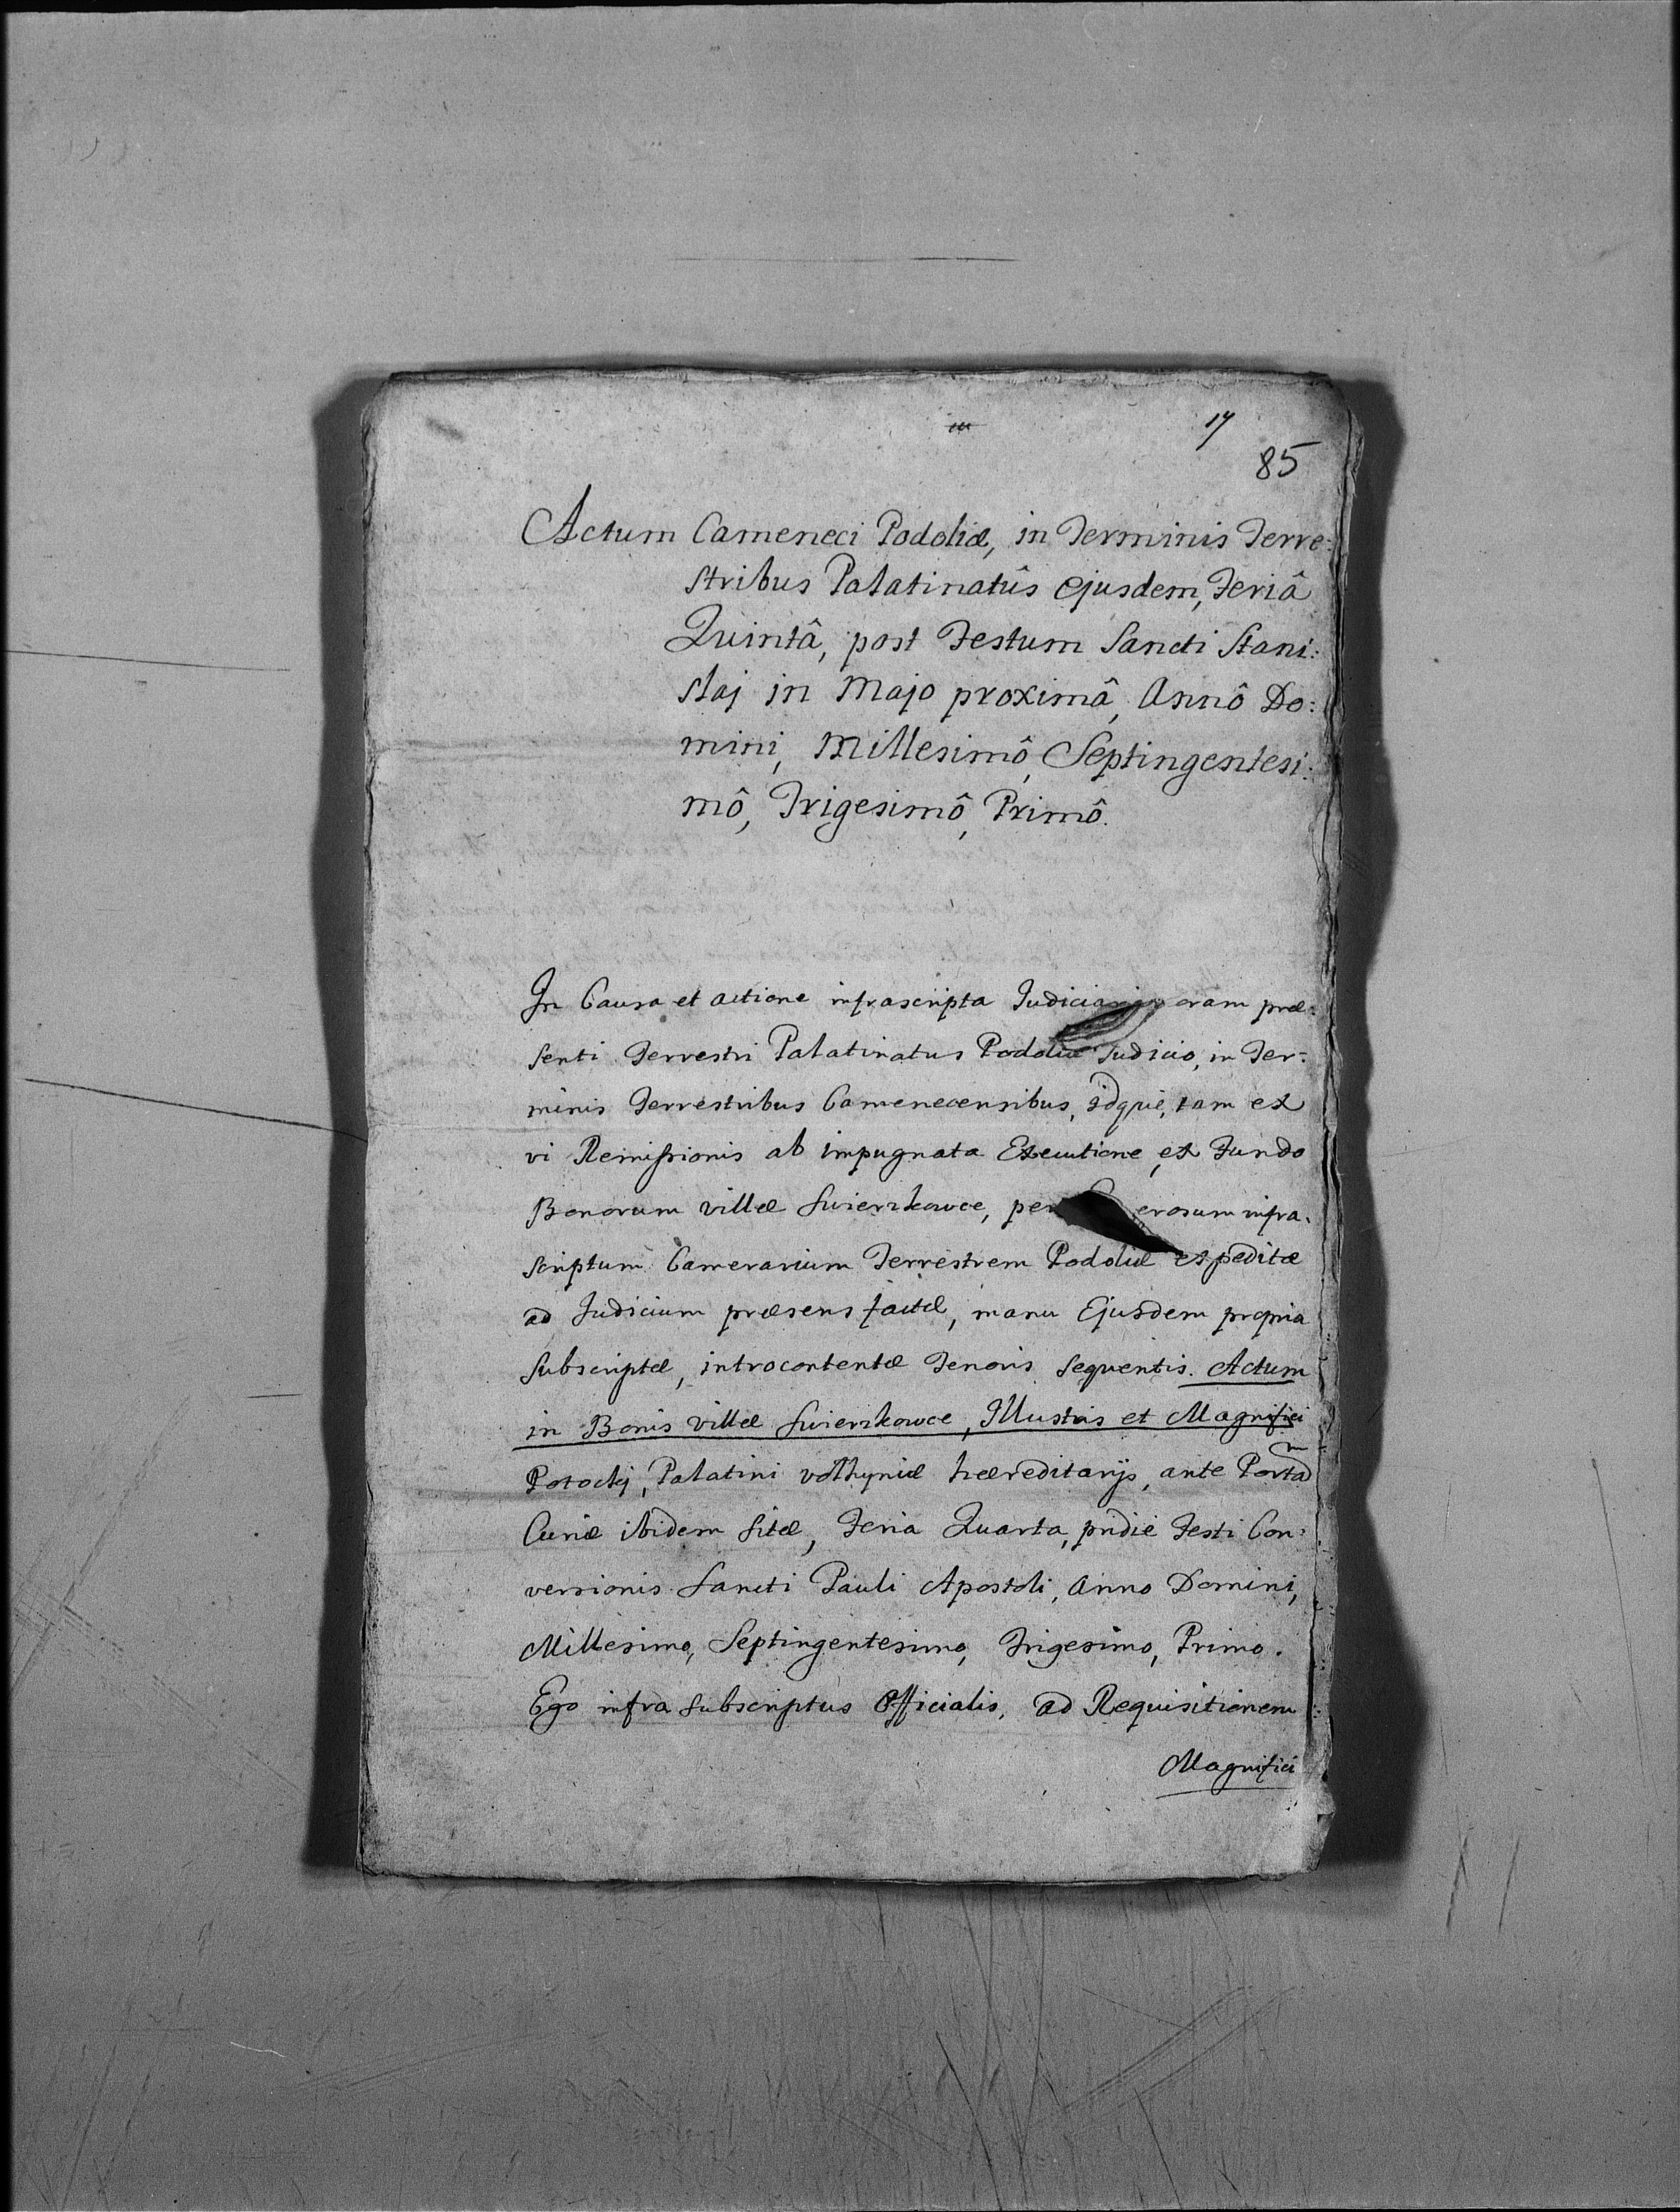 17
85
Actum Cameneci Podoliæ, in Terminis Terre:
stribus Palatinatûs ejusdem, Feriâ
Quintâ, post Festum Sancti Stani:
slaj in Majo proximâ, Annô Do:
mini, Millesimô, Septingentesi:
mô, Trigesimô, Primô.
In Causa et actione infrascripta Judiciarij oram præ:
senti Terrestri Palatinatus Podoliæ Judicio, in Ter:
minis Terrestribus Camenecensibus, idque, tam ex
vi Remissionis ab impugnata Executione, ex Fundo
Bonorum villæ Swierzkowce, per erosum infra:
scriptum Camerarium Terrestrem Podoliæ expeditæ
ad Judicium præsens factæ, manu Ejusdem propria
Subscriptæ, introcontentæ Tenoris sequentis. Actum
in Bonis villæ Swierzkowce, Illustris et Magnifici
Potockj, Palatini volhyniæ hæreditarijs, ante Portã
Curiæ ibidem sitæ, Feria Quarta, pridie Festi Con:
versionis Sancti Pauli Apostoli, Anno Domini,
Millesimo, Septingentesimo, Trigesimo, Primo.
Ego infra subscriptus Officialis, ad Requisitionem
Magnifici